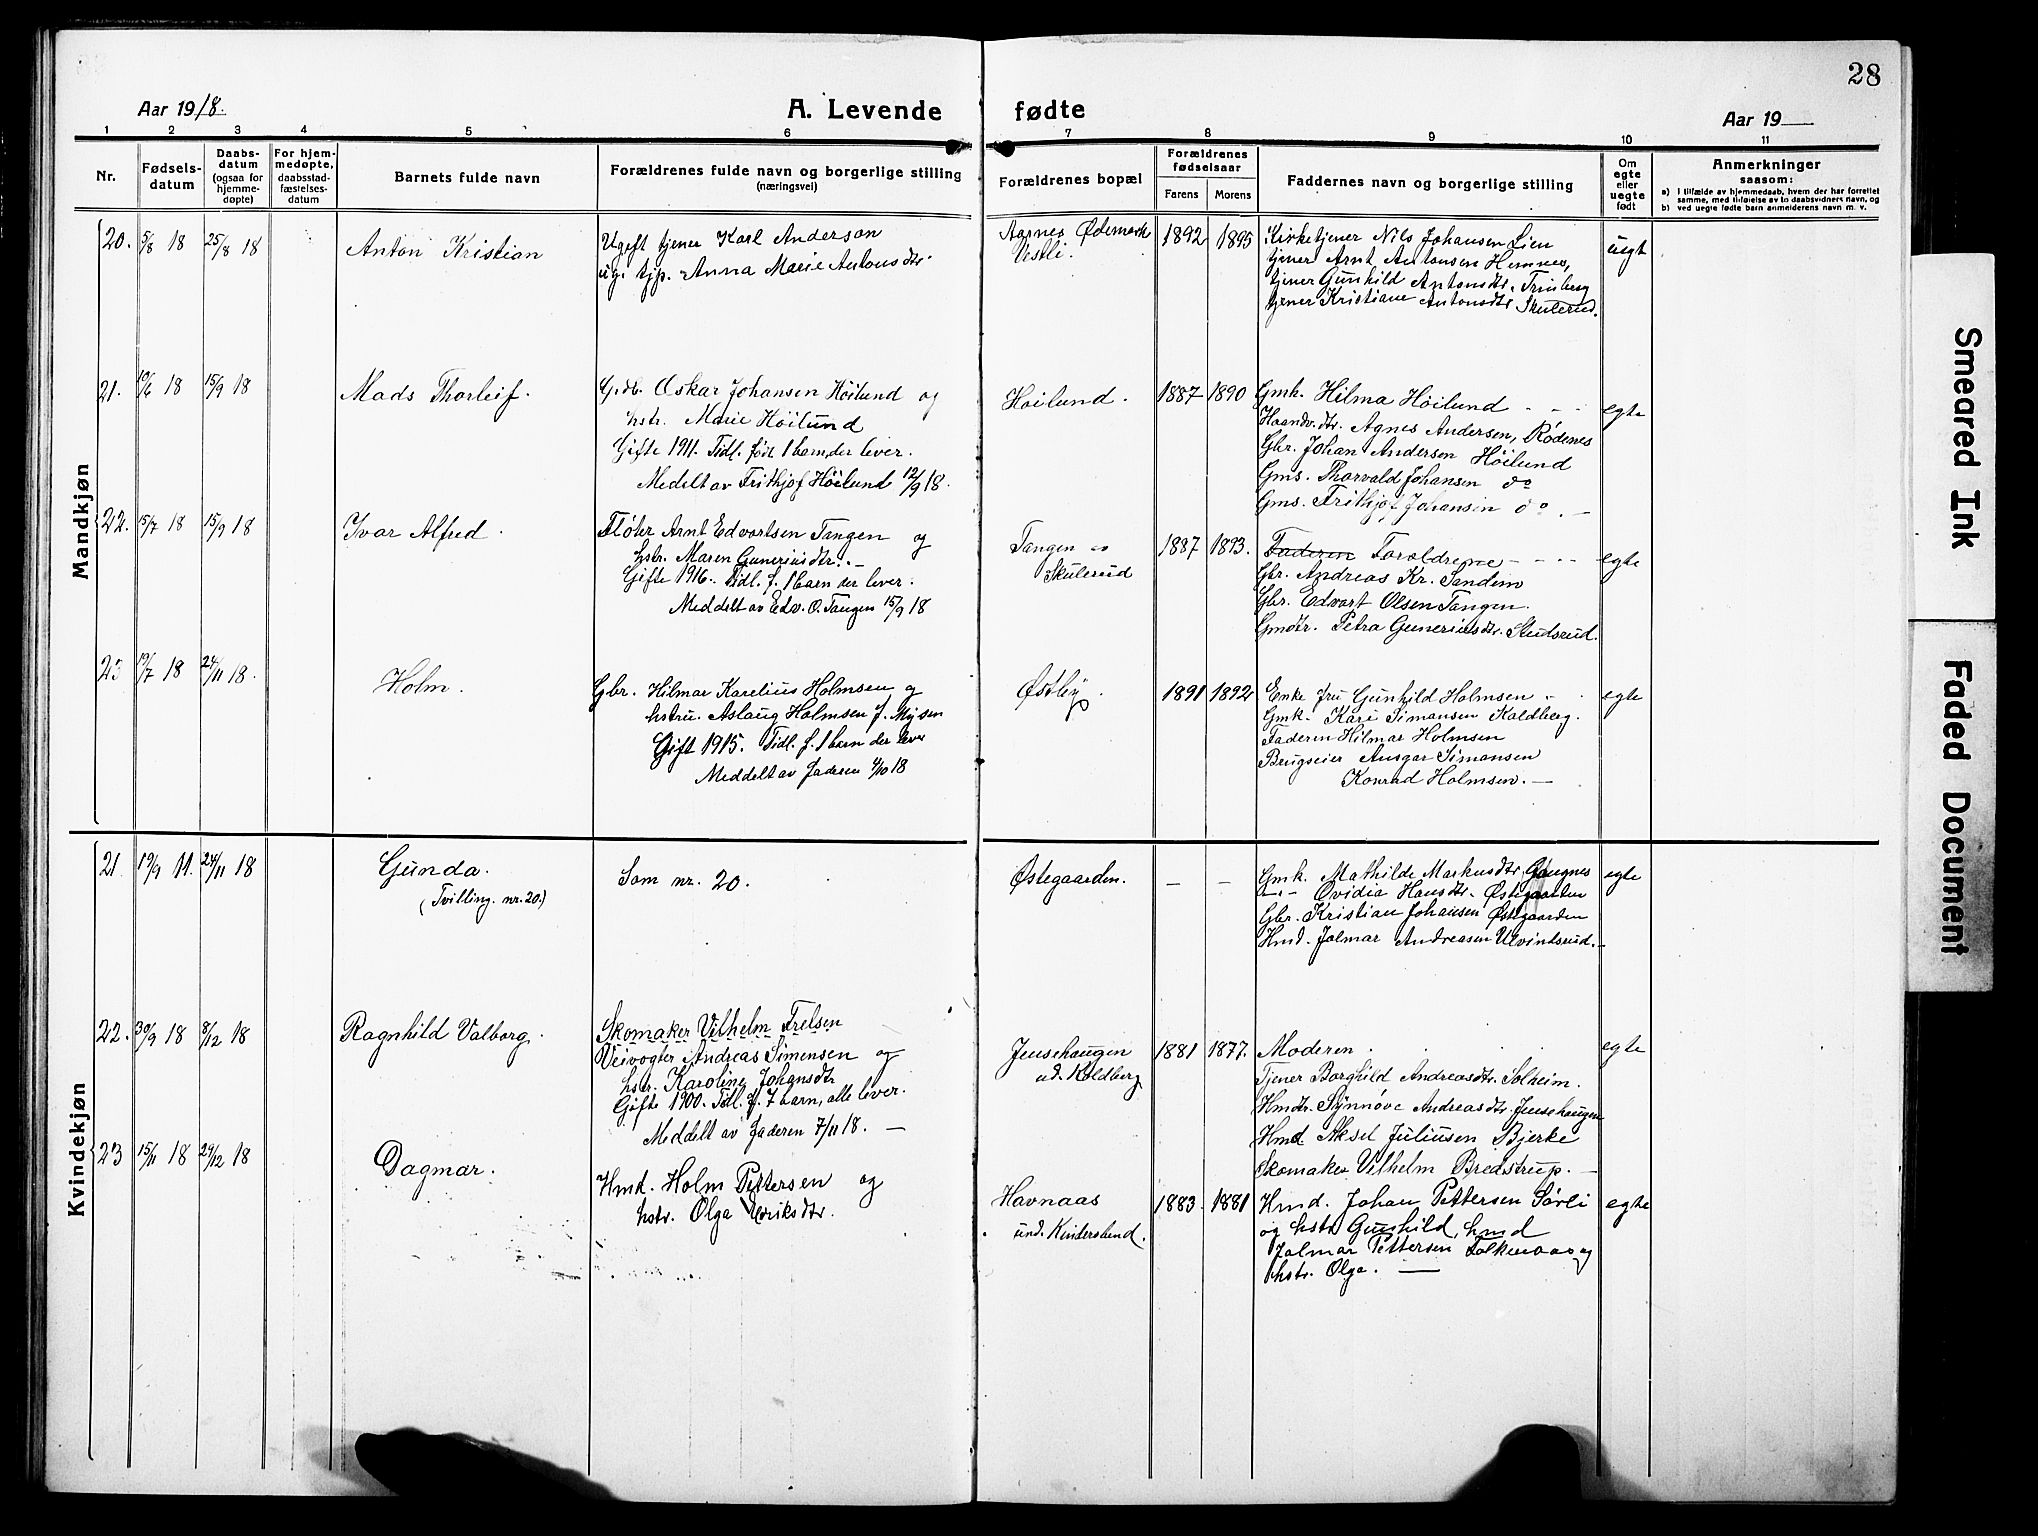 28
Aar 1918.
A. Levende fødte
Aar 19
1 2 3 4 5 6 7 8 9 10 11
Nr.
Fødsels-
datum
Daabs-
datum
(ogsaa for
hjemme-
døpte)
For hjem-
medøpte,
daabsstad-
fæstelses-
datum
Barnets fulde navn
Forældrenes fulde navn og borgerlige stilling
(næringsvei)
Forældrenes bopæl
Forældrenes
fødselsaar
Farens Morens
Faddernes navn og borgerlige stilling
Om
egte
eller
uegte
født
Anmerkninger
saasom:
a) I tilfælde av hjemmedaab, hvem der har forrettet
samme, med tilføielse av to daabsvidners navn, og
b) ved uegte fødte barn anmelderens navn m. v.
Mandkjøn
20. 5/8 18 25/8 18
Anton Kristian
Ugift tjener Karl Anderson
ugi tjp. Anna Marie Antonsdtr.
Aarnes Ødemark
Vestli.
1892 1895
Kirketjener Nils Johansen Lien
tjener Arnt Antonsen Hemnes,
tjener Gunhild Antonsdtr. Trinberg
tjener Kristiane Antonsdtr. Skulerud.
uegt
21. 10/6 18 15/9 18
Mads Thorleif.
Grdb. Oskar Johansen Höilund og
hstr. Marie Höilund
Gifte 1911. Tidl. föit 1 barn, der lever.
Medelt av Frithjof Höilund 12/9 18.
Hoilund.
1887 1890
Gmk. Hilma Höilund
Haandv.dtr. Agnes Andersen, Rödenes
Gbr. Johan Andersen Höilund
Gms. Thorvald Johansen do
Gms. Frithjof Johansen do. —
egte
22. 15/7 18 15/9 18
Ivar Alfred.
Fløter Arnt Edvartsen Tangen og
hstr. Maren Guneriusdtr. —
Gifte 1916. Tidl. f. 1 barn der lever.
Meddelt av Edv. O. Tangen 15/9 18
Tangen
Skulerud
1887 1893.
Faderen Foroldrene
Gbr. Andreas Kr. Sandem
Gbr. Edvart Olsen Tangen.
Gmdtr. Petra Guneriusdtr. Studsrud.
egte
23 19/7 18 24/11 18.
Holm.
Gbr. Hilmar Karelius Holmsen og
hstru. Aslaug Holmsen f. Mysen
Gift 1915. Tidl. f. 1 barn der lever
Meddelt av faderen 4/10 18
Østby.
1891 1892
Enke fru Gunhild Holmsen
Gmk. Kari Simansen Koldberg.
Faderen Hilmar Holmsen
Brugseier Ansgar Simansen
Konrad Holmsen. —
egte
Kvindekjøn
21. 19/9 11. 24/11 18
Gunda.
(Tvilling. nr. 20.)
Som nr. 20.
Østegaarden.
— —
Gmk. Mathilde Markusdtr.
—"— Ovidia Hansdtr. Østegaarden
Gbr. Kristian Johansen Østegaarden
Hmd. Jalmar Andreasen Ulvindsrud. —
egte
22. 30/9 18 8/12 18
Ragnhild Valborg.
Skomaker Vilhelm Frelsen
Veivogter Andreas Simensen og
hstr. Karoline Johansdtr
Gifte 1900. Tidl. f. 7 barn, alle lever.
Meddelt av faderen 7/11 18. —
Jensehaugen
ud. Koldberg
1881 1877.
Moderen
Tjener Borghild Andreasdtr. Solheim.
Hmdtr. Synnöve Andreasdtr. Jensehaugen
Hmd Aksel Juliusen Bjerke
Skomaker Vilhelm Bredstrup. —
egte
23 15/11 18 29/12 18
Dagmar.
Hmd. Holm Pettersen og
hstr. Olga Eriksdtr.
Havnaas
und. Kinderslund.
1883 1881
Hmd. Johan Pettersen Sörli
og hstr Gunhild, hmd
Jalmar Pettersen Falkenaas og
hstr. Olga. —
egte
Smeared Ink
Faded Document